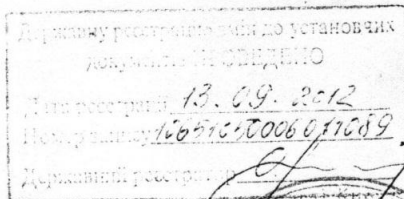 Державну реєстрацію змін до установчих
документів ПРОВЕДЕНО
Дата реєстрації 13.09.2012
Номер запису
Державний реєстратор